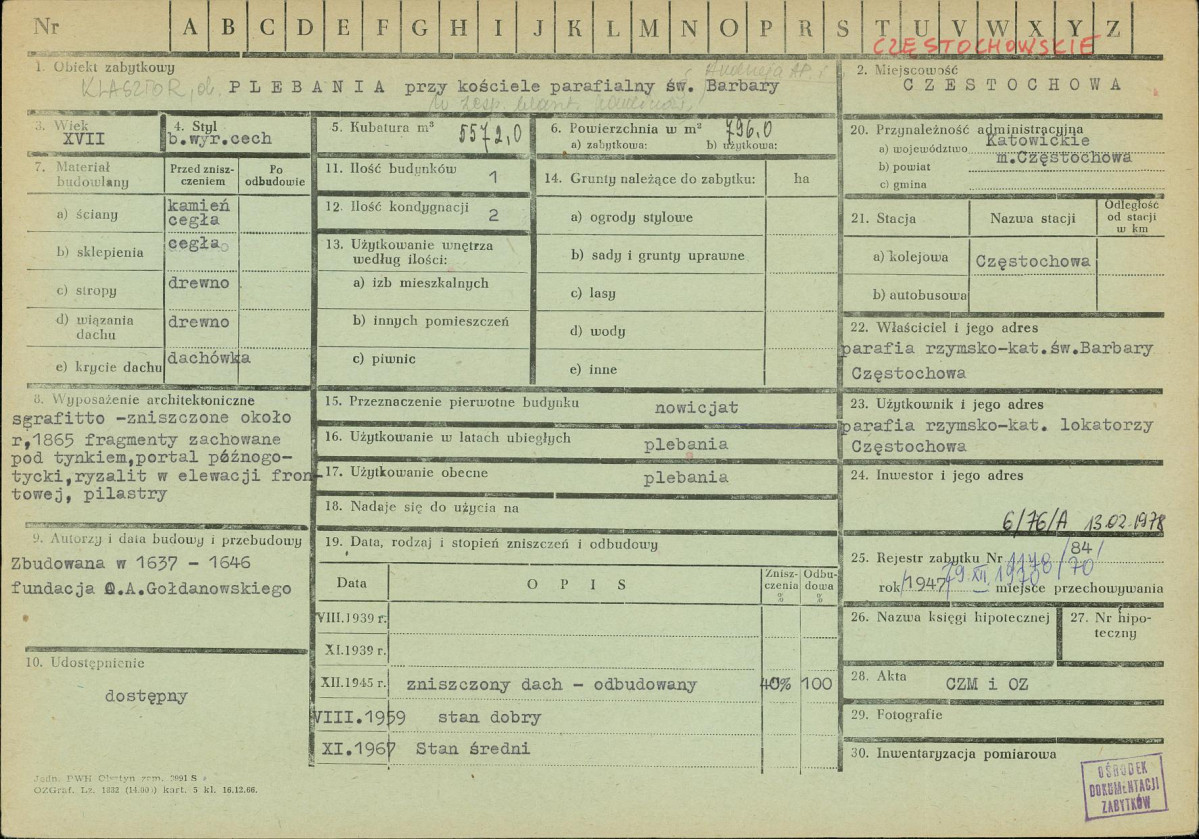 Nr A B C D E F G H I J K L M N O P R S T U V W X Y Z
CZĘSTOCHOWSKIE
1. Obiekt zabytkowy
KLASZTOR, ob. PLEBANIA przy kościele parafialny św. Barbary
2. Miejscowość
CZESTOCHOWA
3. Wiek
XVII
4. Styl
b.wyr.cech
5. Kubatura m³ 5572,0
6. Powierzchnia w m² 796,0
a) zabytkowa: b) użytkowa:
7. Materiał budowlany
Przed zniszczeniem
Po odbudowie
a) ściany kamień cegła
b) sklepienia cegła
c) stropy drewno
d) wiązania dachu drewno
e) krycie dachu dachówka
8. Wyposażenie architektoniczne
sgrafitto -zniszczone około
r,1865 fragmenty zachowane
pod tynkiem,portal późnogo-
tycki,ryzalit w elewacji fron-
towej, pilastry
9. Autorzy i data budowy i przebudowy
Zbudowana w 1637 - 1646
fundacja O.A.Gołdanowskiego
10. Udostępnienie
dostępny
11. Ilość budynków 1
12. Ilość kondygnacji 2
13. Użytkowanie wnętrza
według ilości:
a) izb mieszkalnych
b) innych pomieszczeń
c) piwnic
14. Grunty należące do zabytku: ha
a) ogrody stylowe
b) sady i grunty uprawne
c) lasy
d) wody
e) inne
15. Przeznaczenie pierwotne budynku nowicjat
16. Użytkowanie w latach ubiegłych plebania
17. Użytkowanie obecne plebania
18. Nadaje się do użycia na
19. Data, rodzaj i stopień zniszczeń i odbudowy
Data OPIS Zniszczenia % Odbudowa %
VIII.1939 r.
XI.1939 r.
XII.1945 r. zniszczony dach - odbudowany 40% 100
VIII.1959 stan dobry
XI.1967 Stan średni
20. Przynależność administracyjna
a) województwo Katowickie
b) powiat m.Częstochowa
c) gmina
21. Stacja Nazwa stacji Odległość od stacji w km
a) kolejowa Częstochowa
b) autobusowa
22. Właściciel i jego adres
parafia rzymsko-kat.św.Barbary
Częstochowa
23. Użytkownik i jego adres
parafia rzymsko-kat. lokatorzy
Częstochowa
24. Inwestor i jego adres
6/76/A 13.02.1978
25. Rejestr zabytku Nr 1178/70 /84/
rok /1947/ 9.XII.1970 miejsce przechowywania
26. Nazwa księgi hipotecznej
27. Nr hipoteczny
28. Akta CZM i OZ
29. Fotografie
30. Inwentaryzacja pomiarowa
OŚRODEK
DOKUMENTACJI
ZABYTKÓW
Jedn. PWH Olsztyn zam. 3991 S
OZGraf. Lz. 1332 (14.000) kart. 5 kl. 16.12.66.